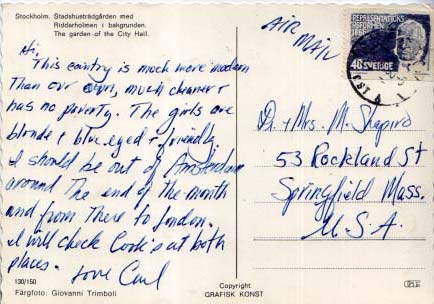 Stockholm. Stadshusträdgården med
Riddarholmen i bakgrunden.
The garden of the City Hall.
Hi,
This country is much more modern
than our own, much cleaner +
has no poverty. The girls are
blonde + blue eyed + friendly.
I should be out of Amsterdam
around the end of the month
and from there to London.
I will check Cook's at both
places. Love Carl
130/150
Färgfoto: Giovanni Trimboli
Copyright
GRAFISK KONST
AIR
MAIL
REPRESENTATIONS
REFORMEN
1866
40 SVERIGE
Dr. + Mrs. M. Shapiro
53 Rockland St
Springfield Mass.
U.S.A.